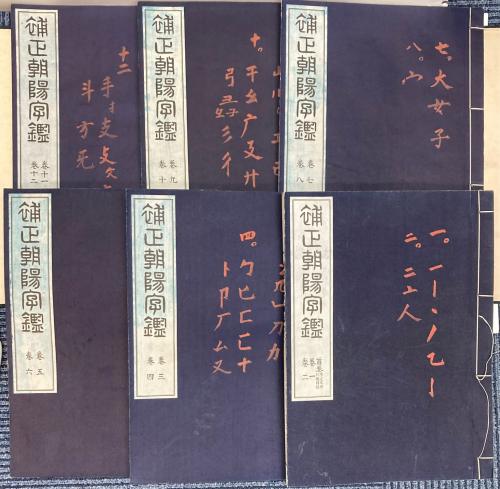 補正朝陽字鑑
卷七
卷八
七。大女子
八。宀
補正朝陽字鑑
卷九
卷十
十。干幺广廴廾
弓彐彡彳
補正朝陽字鑑
卷十一
卷十二
十二
手寸支攴文
斗方无
補正朝陽字鑑
卷一
卷二
一。一丨丶丿乙亅
二。二亠人
補正朝陽字鑑
卷三
卷四
四。勹匕匚匸十
卜卩厂厶又
補正朝陽字鑑
卷五
卷六